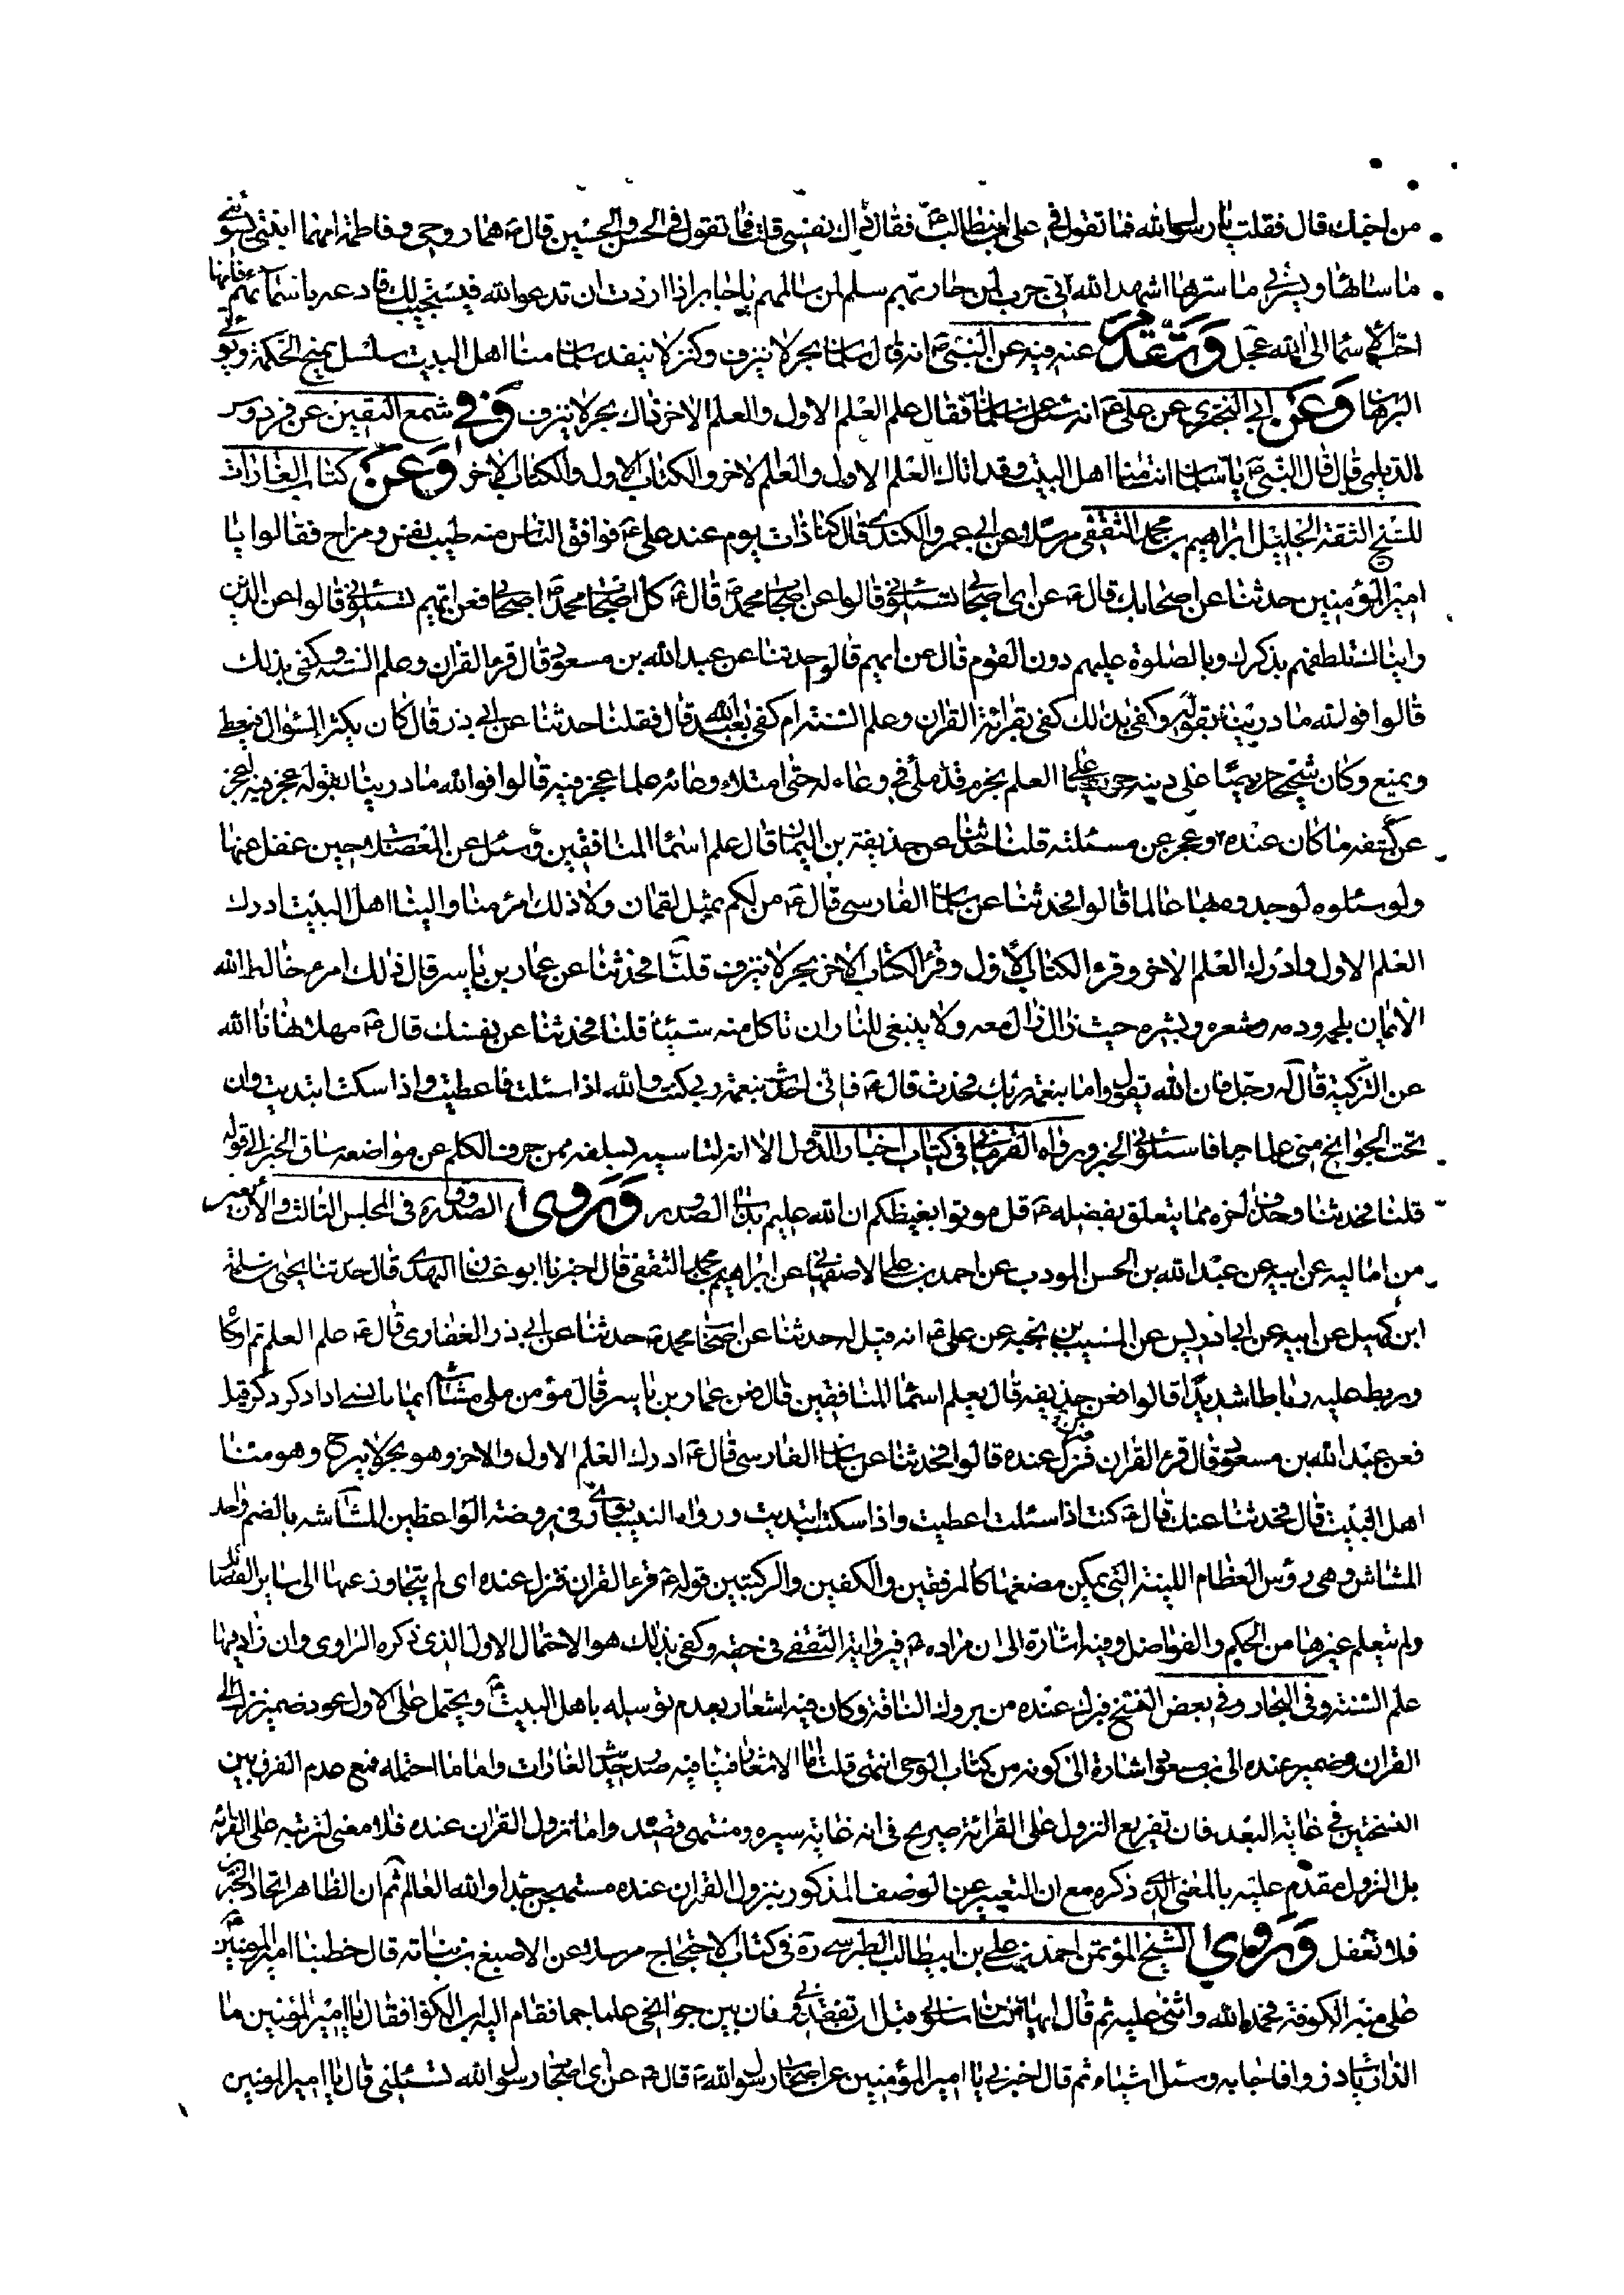 من احبك قال فقلت يا رسول الله فما تقول في علي بن ابيطالب ع فقال ذاك نفسي قلت فما تقول في الحسن والحسين قال ص هما روحي وفاطمة امهما ابنتي يسوئني
ما سائها ويسرني ما سرها اشهد الله اني حرب لمن حاربهم سلم لمن سالمهم يا جابر اذا اردت ان تدعو الله فيستجيب لك فادعه باسمائهم فانها
احب الاسماء الى الله عز وجل وتقدم عنه فيه عن النبي ص انه قال سلمان بحر لا ينزف وكنز لا ينفد سلمان منا اهل البيت سلسل يمنح الحكمة ويؤتى
البرهان وعن ابي البختري عن علي ع انه سئل عن سلمان فقال علم العلم الاول والعلم الاخر ذاك بحر لا ينزف وفي شمع اليقين عن فردوس
الديلمي قال قال النبي ص يا سلمان انت منا اهل البيت وقد اتاك العلم الاول والعلم الاخر والكتاب الاول والكتاب الاخر وعن كتاب الغارات
للشيخ الثقة الجليل ابراهيم بن محمد الثقفي مرسلا عن ابي عمرو الكندي قال كنا ذات يوم عند علي ع فوافق الناس منه طيب نفس ومزاح فقالوا يا
امير المؤمنين حدثنا عن اصحابك قال ع عن اي اصحابي تسئلوني قالوا عن اصحاب محمد ص قال ع كل اصحاب محمد ص اصحابي فعن ايهم تسئلوني قالوا عن الذين
راينا تلطفهم بذكرك وبالصلوة عليهم دون القوم قال عن ايهم قالوا حدثنا عن عبد الله بن مسعود قال قرء القران وعلم السنة وكفى بذلك
قالوا فوالله ما درينا بقوله وكفى بذلك كفى بقرائة القران وعلم السنة ام كفى بعبد الله قال فقلنا حدثنا عن ابي ذر قال كان يكثر السؤال فيعطى
ويمنع وكان شحيحا حريصا على دينه حريصا على العلم بحزم قد ملئ في وعاء له حتى امتلاء وعائه علما عجز فيه قالوا فوالله ما درينا بقوله عجز فيه اعجز
عن كشفه ما كان عنده او عجز عن مسئلته قلنا حدثنا عن حذيفة بن اليمان قال علم اسماء المنافقين وسئل عن المعضلات حين غفل عنها
ولو سئلوه لوجدوه بها عالما قالوا فحدثنا عن سلمان الفارسي قال ع من لكم بمثل لقمان وذلك امرء منا والينا اهل البيت ادرك
العلم الاول وادرك العلم الاخر وقرء الكتاب الاول وقرء الكتاب الاخر بحر لا ينزف قلنا فحدثنا عن عمار بن ياسر قال ذلك امرء خالط الله
الايمان بلحمه ودمه وشعره وبشره حيث زال زال معه ولا ينبغي للنار ان تاكل منه شيئا قلنا فحدثنا عن نفسك قال ع مهلا نهانا الله
عن التزكية قال له رجل فان الله يقول واما بنعمة ربك فحدث قال ع فاني احدث بنعمة ربي كنت والله اذا سئلت فاعطيت واذا سكت ابتديت وان
تحت الجوانح مني علما جما فاسئلوني الخبر ورواه القرماني في كتاب اخبار الدول الا انه لتاسيه بسلفه ممن حرف الكلم عن مواضعه ساق الخبر الى قوله
قلنا فحدثنا وحذف اخره مما يتعلق بفضله ع قل موتوا بغيظكم ان الله عليم بذات الصدور وروى الصدوق ره في المجلس الثالث والاربعين
من اماليه عن ابيه عن عبد الله بن الحسن المودب عن احمد بن علي الاصفهاني عن ابراهيم بن محمد الثقفي قال اخبرنا ابو غسان النهدي قال حدثنا يحيى بن سلمة
ابن كهيل عن ابيه عن ابي ادريس عن المسيب بن نجبة عن علي ع انه قيل له حدثنا عن اصحاب محمد ص حدثنا عن ابي ذر الغفاري قال ع علم العلم ثم اوكا
وربط عليه رباطا شديدا قالوا فعن حذيفة قال يعلم اسماء المنافقين قال فعن عمار بن ياسر قال مؤمن ملئ مشاشه ايمانا نسي اذا ذكر ذكر قيل
فعن عبد الله بن مسعود قال قرء القران فنزل عنده قالوا فحدثنا عن سلمان الفارسي قال ع ادرك العلم الاول والاخر وهو بحر لا ينزح وهو منا
اهل البيت قال فحدثنا عنك قال ع كنت اذا سئلت اعطيت واذا سكت ابتديت ورواه النيسابوري في روضة الواعظين المشاشه بالضم واحد
المشاش وهي رؤس العظام اللينة التي يمكن مضغها كالمرفقين والكفين والركبتين قوله ع قرء القران فنزل عنده اي لم يتجاوز عنها الى ساير الفضائل
ولم يتعلم غيرها من الحكم والفواضل وفيه اشارة الى ان مراده ع في رواية الثقفي في حقه وكفى بذلك هو الاحتمال الاول الذي ذكره الراوي وان زاد فيها
علم السنة وفي البحار وفي بعض النسخ فبرك عنده من بروك الناقة وكان فيه اشعار بعدم توسله باهل البيت ع ويحتمل على الاول عود ضمير نزل الى
القران وضمير عنده الى بن مسعود اشارة الى كونه من كتاب الوحي انتهى قلت اما الاشعار فينافيه صدر حديث الغارات واما ما احتمله فمع عدم الفرق بين
النسختين في غاية البعد فان تفريع النزول على القرائة صريح في انه غاية سيره ومنتهى قصده واما نزول القران عنده فلا معنى لترتبه على القرائة
بل النزول مقدم عليه بالمعنى الذي ذكره مع ان التعبير عن الوصف المذكور بنزول القران عنده مستهجن جدا والله العالم ثم ان الظاهر اتحاد الخبرين
فلا تغفل وروى الشيخ المؤتمن احمد بن علي بن ابيطالب الطبرسي ره في كتاب الاحتجاج مرسلا عن الاصبغ بن نباته قال خطبنا امير المؤمنين ع
على منبر الكوفة فحمد الله واثنى عليه ثم قال ايها الناس سلوني قبل ان تفقدوني فان بين جوانحي علما جما فقام اليه ابن الكوا فقال يا امير المؤمنين ما
الذاريات ذروا فاجابه وسئل اشياء ثم قال اخبرني يا امير المؤمنين عن اصحاب رسول الله ص قال ع عن اي اصحاب رسول الله تسئلني قال يا امير المؤمنين